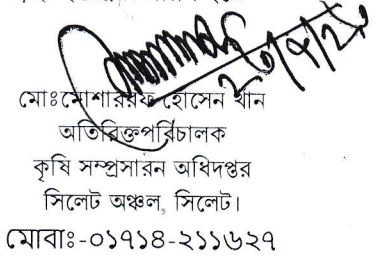 মোঃমোশাররফ হোসেন খান
অতিরিক্তপরিচালক
কৃষি সম্প্রসারন অধিদপ্তর
সিলেট অঞ্চল, সিলেট।
মোবাঃ-০১৭১৪-২১১৬২৭